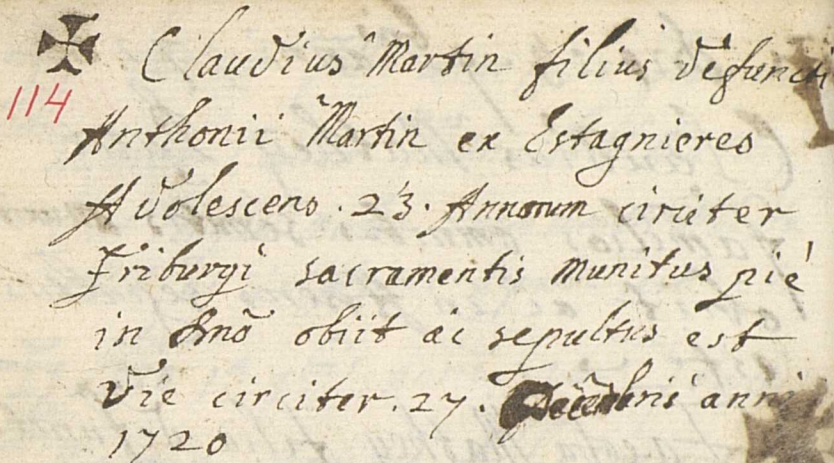 Claudius Martin filius defuncti
114
Anthonii Martin ex Estagnieres
Adolescens . 23 . Annorum circiter
Friburgi sacramentis munitus pié
in dno obiit ac sepultus est
die circiter . 27 . Decembris anni
1720